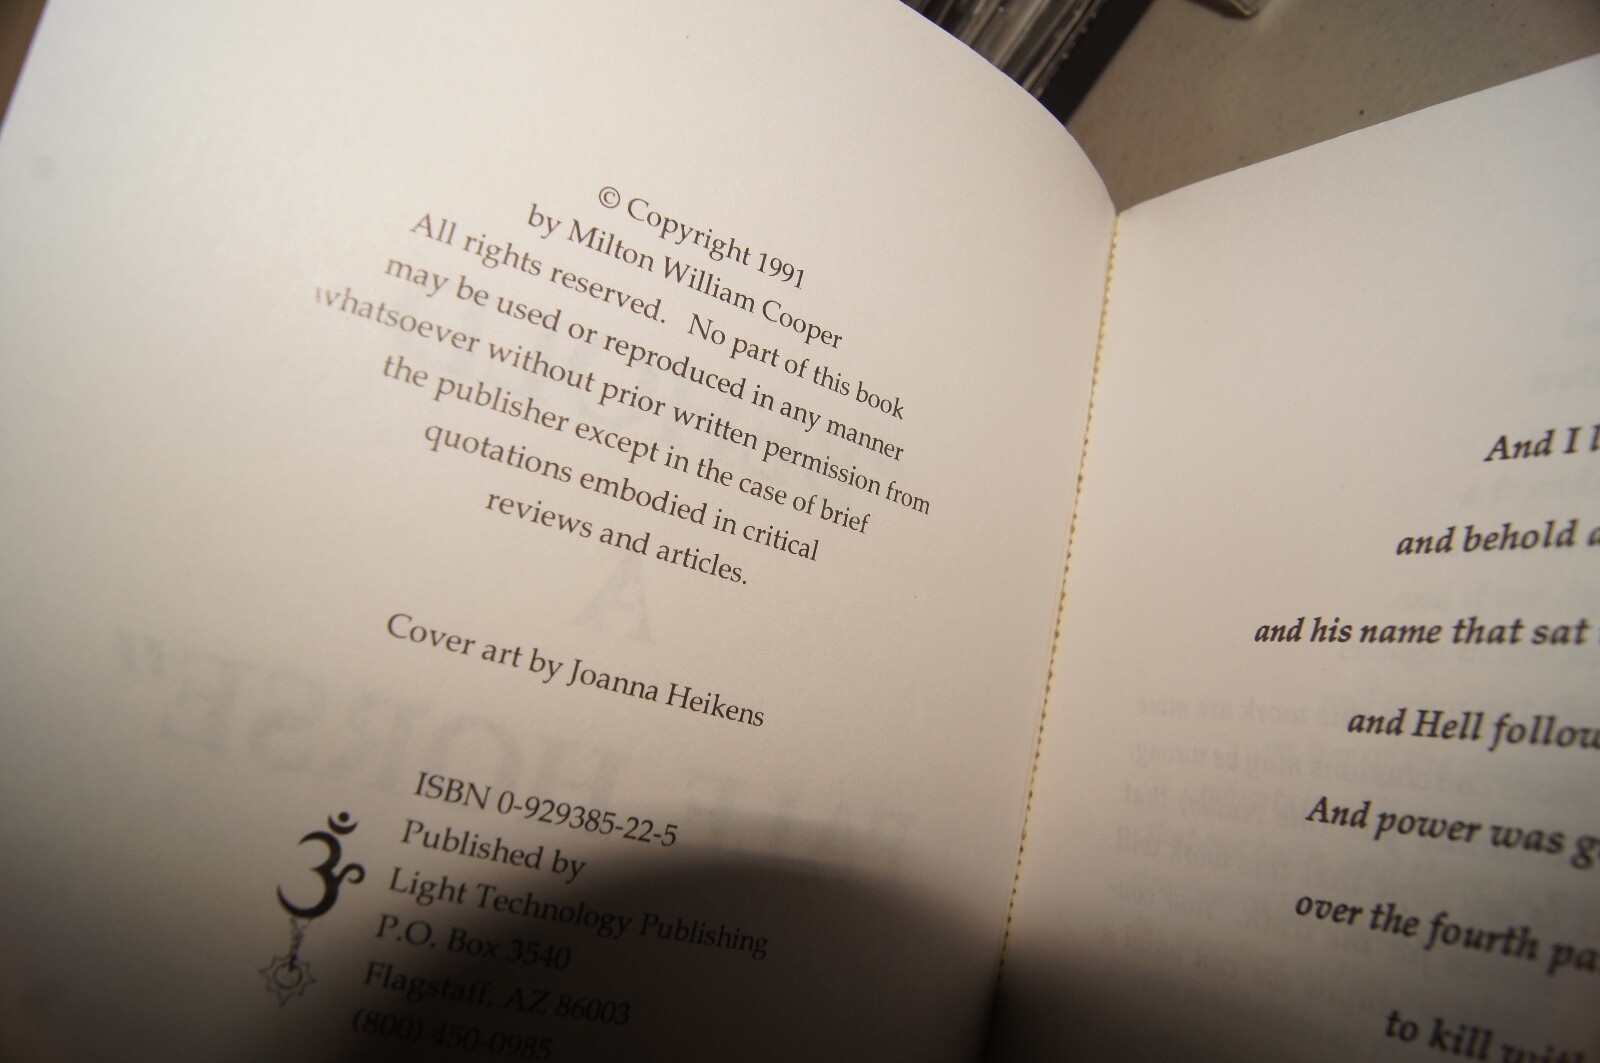 © Copyright 1991
by Milton William Cooper
All rights reserved. No part of this book
may be used or reproduced in any manner
whatsoever without prior written permission from
the publisher except in the case of brief
quotations embodied in critical
reviews and articles.
Cover art by Joanna Heikens
ISBN 0-929385-22-5
Published by
Light Technology Publishing
P.O. Box 3540
Flagstaff, AZ 86003
(800) 450-0985
And I
and behold
and his name that sat
and Hell
And power was
over the fourth
to kill